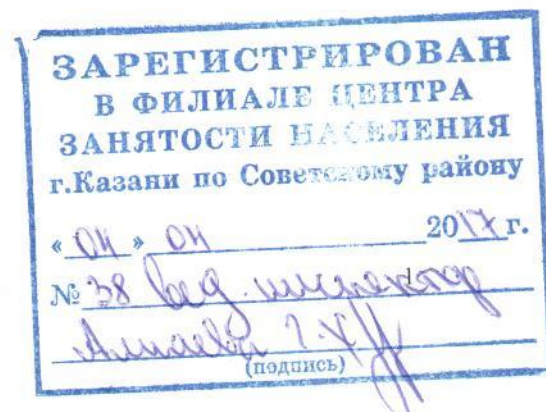 ЗАРЕГИСТРИРОВАН
В ФИЛИАЛЕ ЦЕНТРА
ЗАНЯТОСТИ НАСЕЛЕНИЯ
г.Казани по Советскому району
« 04 » 04 2017 г.
№ 38 вед. инспектор
Г.Х
(подпись)